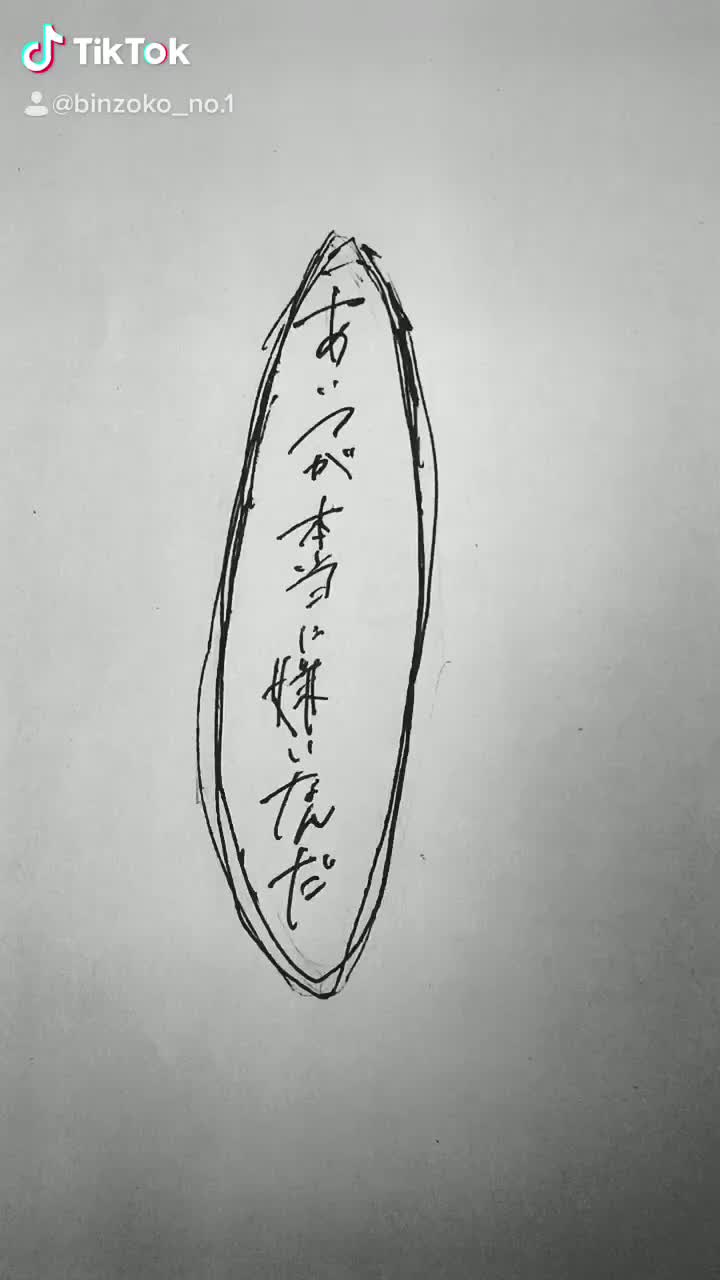 TikTok
@binzoko_no.1
あいつが本当に嫌いなんだ